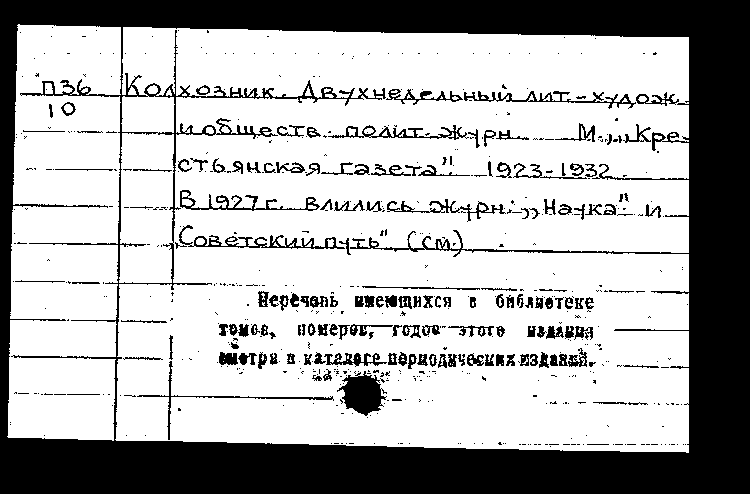 П36 Колхозник. Двухнедельный лит.-худож.
10
и обществ. полит. журн. М., „Кре-
стьянская газета". 1923-1932.
В 1927 г. влились журн.: „Наука" и
„Советский путь" (см.)
Перечень имеющихся в библиотеке
томов, номеров, годов этого издания
смотри в каталоге периодических изданий.